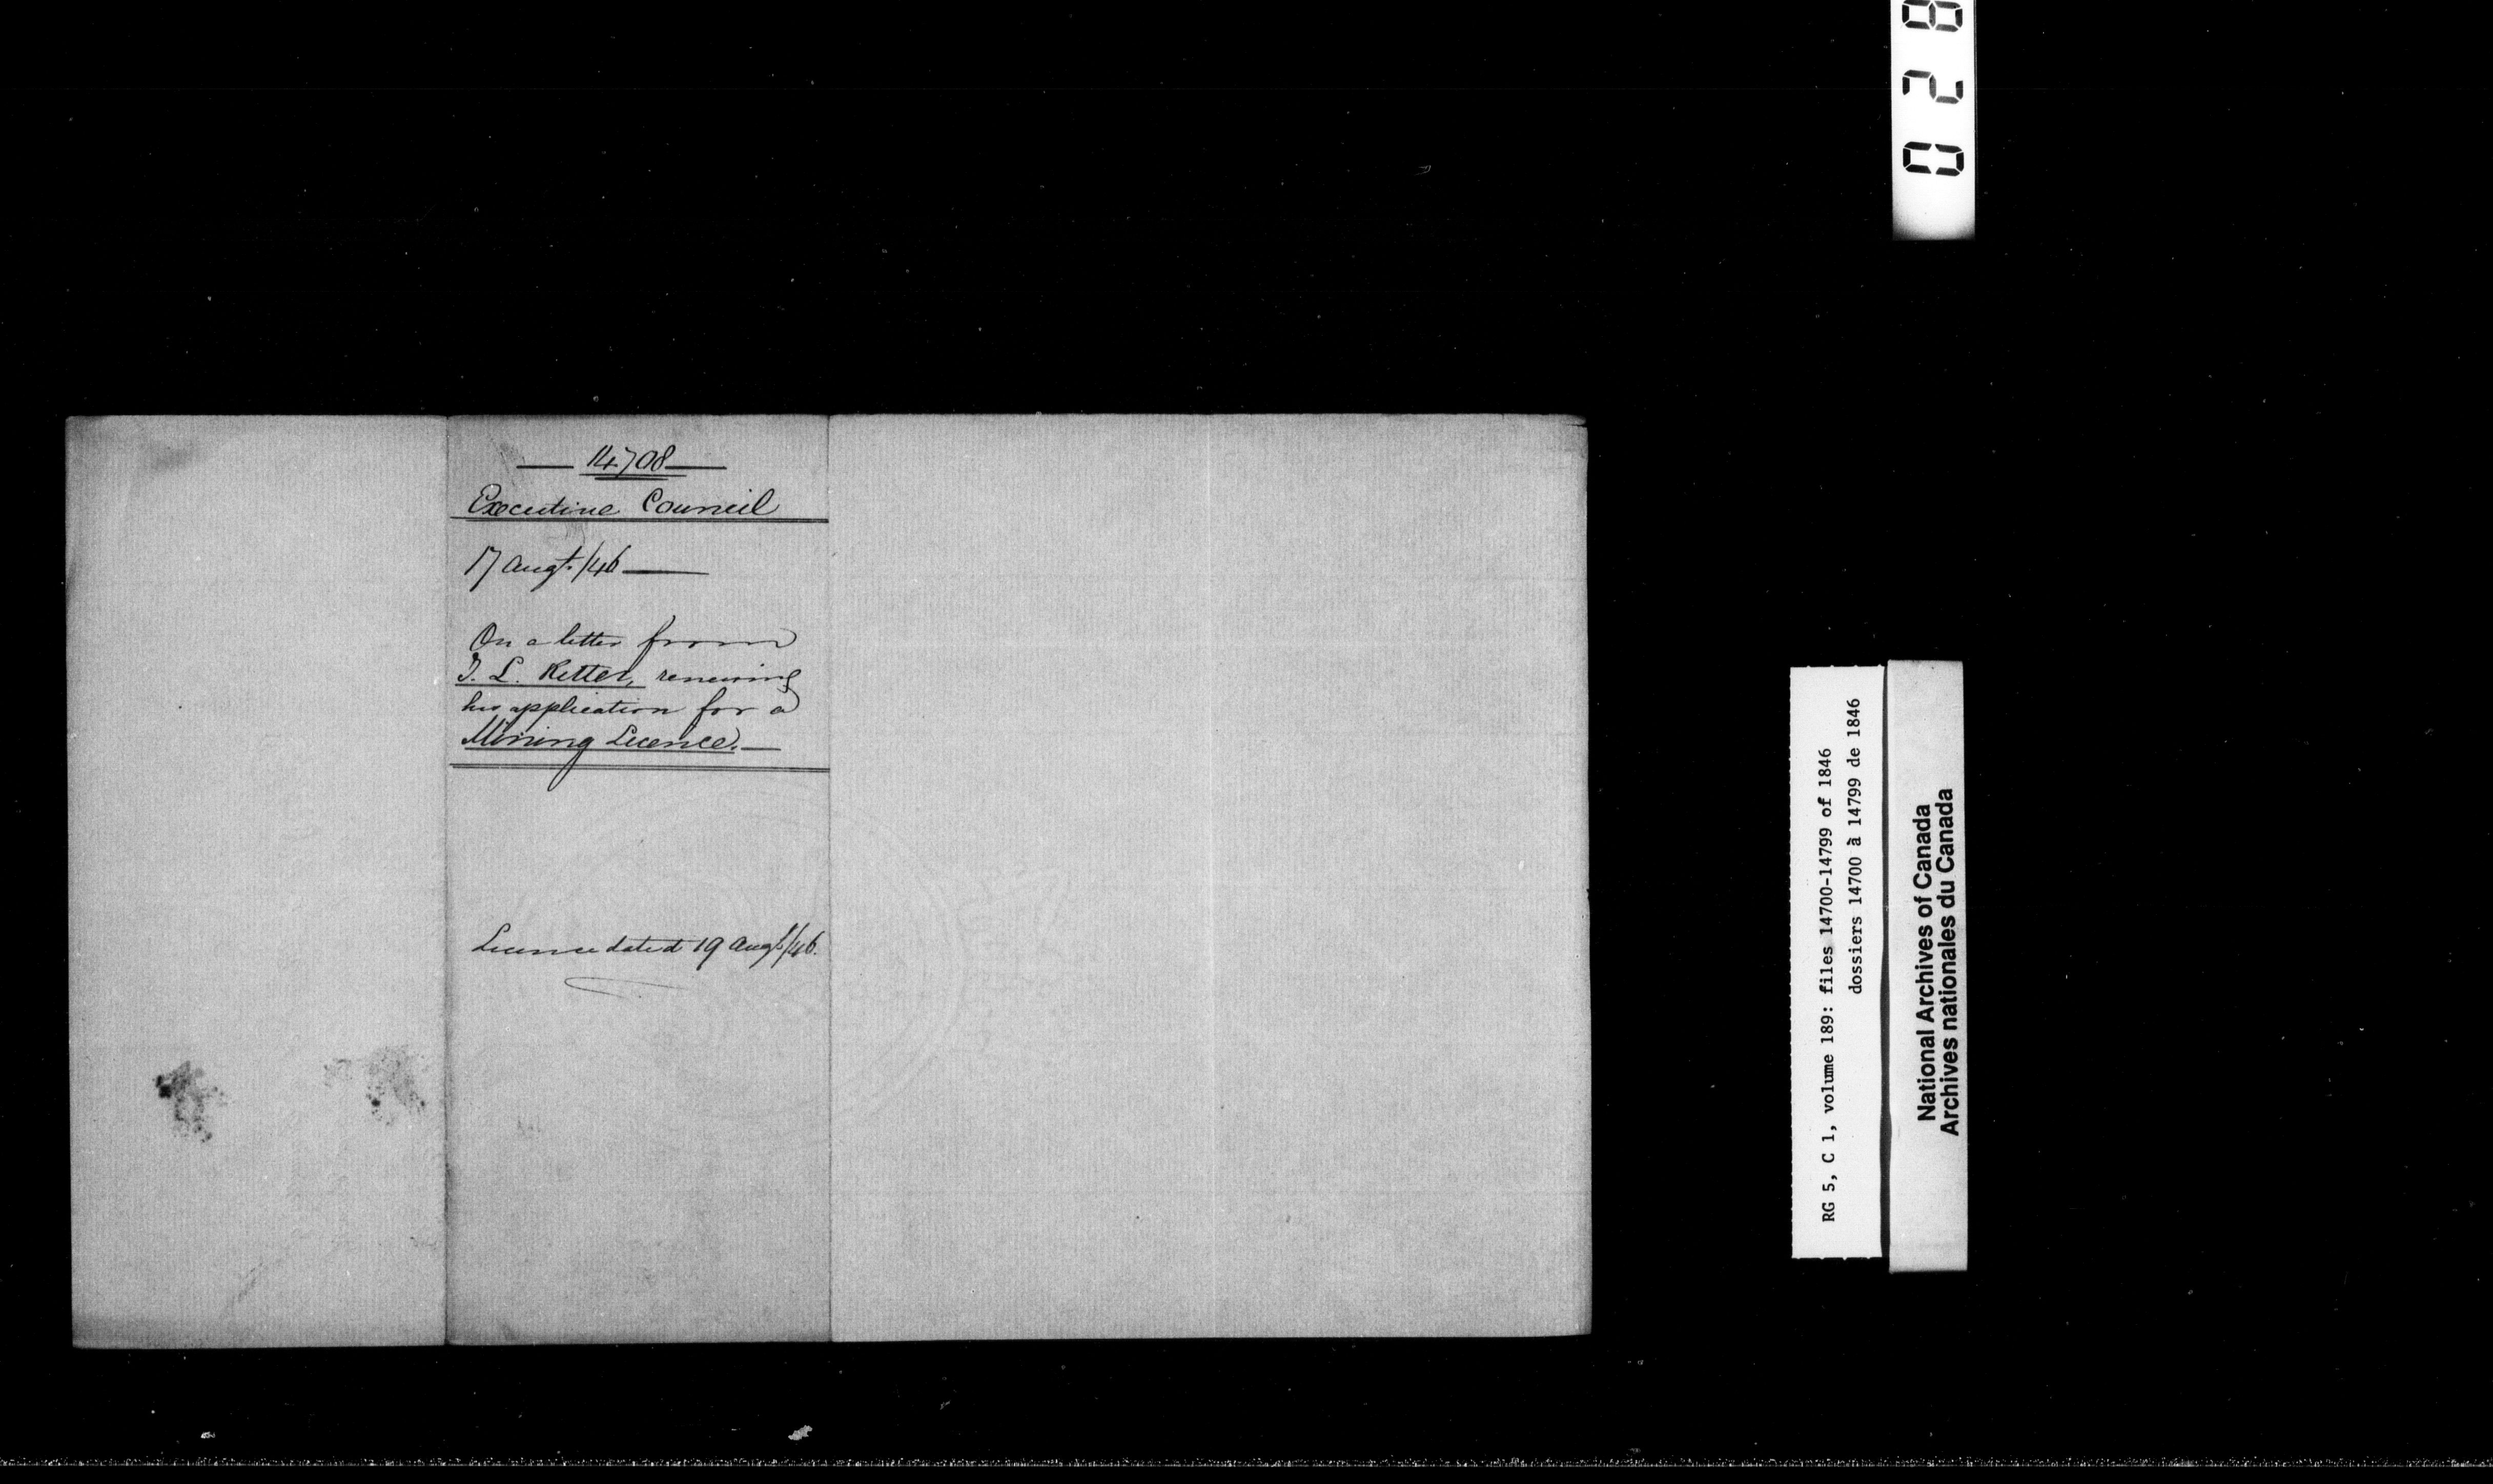 14708
Executive Council
17 Augt. /46
On a letter from
T. L. Ritter, renewing
his application for a
Mining Licence.
Licence dated 19 Augt/46.
RG 5, C 1, volume 189: files 14700-14799 of 1846
dossiers 14700 à 14799 de 1846
National Archives of Canada
Archives nationales du Canada
028